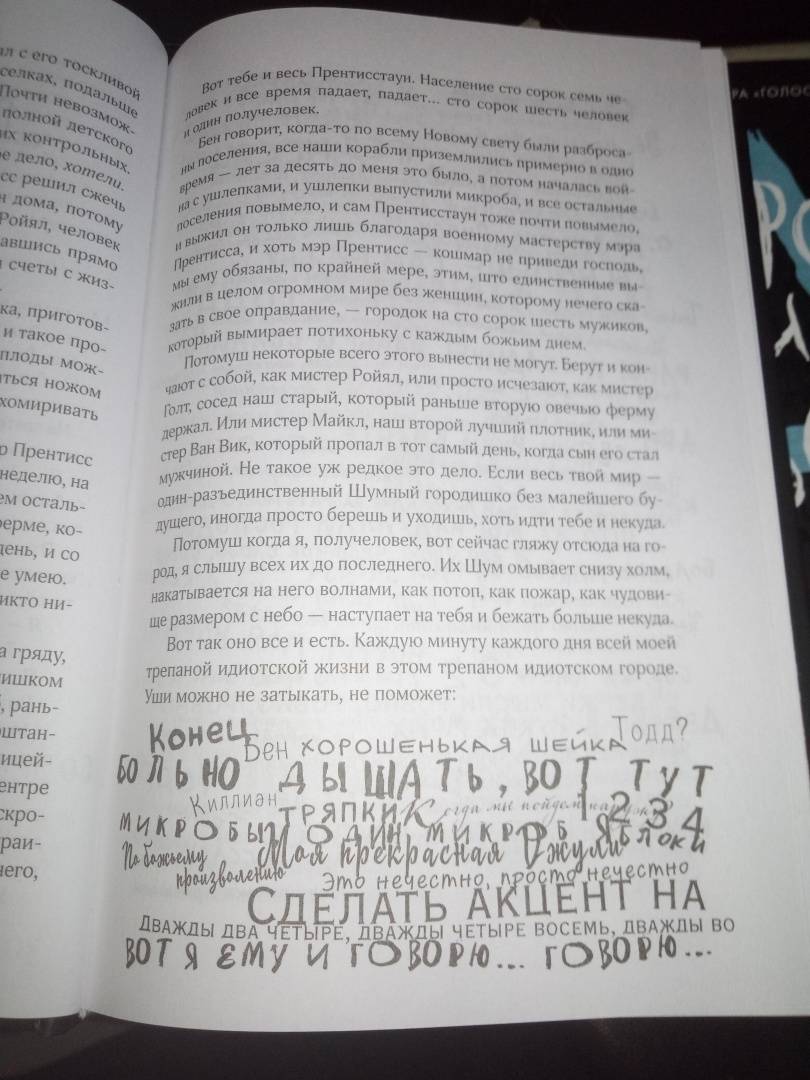 л с его тоскливой
селках, подальше
Почти невозмож-
полной детского
их контрольных.
ое дело, хотели.
сс решил сжечь
н дома, потому
Ройял, человек
авшись прямо
счеты с жиз-
ка, приготов-
и такое про-
плоды мож-
ться ножом
хомиривать
р Прентисс
неделю, на
ем осталь-
ерме, ко-
день, и со
е умею.
икто ни-
а гряду,
ишком
, рань-
штан-
ицей-
ентре
скро-
раи-
него,
Вот тебе и весь Прентисстаун. Население сто сорок семь че-
ловек и все время падает, падает... сто сорок шесть человек
и один получеловек.
Бен говорит, когда-то по всему Новому свету были разброса-
ны поселения, все наши корабли приземлились примерно в одно
время — лет за десять до меня это было, а потом началась вой-
на с ушлепками, и ушлепки выпустили микроба, и все остальные
поселения повымело, и сам Прентисстаун тоже почти повымело,
и выжил он только лишь благодаря военному мастерству мэра
Прентисса, и хоть мэр Прентисс — кошмар не приведи господь,
мы ему обязаны, по крайней мере, этим, што единственные вы-
жили в целом огромном мире без женщин, которому нечего ска-
зать в свое оправдание, — городок на сто сорок шесть мужиков,
который вымирает потихоньку с каждым божьим днем.
Потомуш некоторые всего этого вынести не могут. Берут и кон-
чают с собой, как мистер Ройял, или просто исчезают, как мистер
Голт, сосед наш старый, который раньше вторую овечью ферму
держал. Или мистер Майкл, наш второй лучший плотник, или ми-
стер Ван Вик, который пропал в тот самый день, когда сын его стал
мужчиной. Не такое уж редкое это дело. Если весь твой мир —
один-разъединственный Шумный городишко без малейшего бу-
дущего, иногда просто берешь и уходишь, хоть идти тебе и некуда.
Потомуш когда я, получеловек, вот сейчас гляжу отсюда на го-
род, я слышу всех их до последнего. Их Шум омывает снизу холм,
накатывается на него волнами, как потоп, как пожар, как чудови-
ще размером с небо — наступает на тебя и бежать больше некуда.
Вот так оно все и есть. Каждую минуту каждого дня всей моей
трепаной идиотской жизни в этом трепаном идиотском городе.
Уши можно не затыкать, не поможет:
Конец Бен хорошенькая шейка Тодд?
БОЛЬНО ДЫШАТЬ, ВОТ ТУТ
Киллиан ТРЯПКИ Когда мы пойдем 1 2 3 4
МИКРОБЫ ОДИН МИКРОБ ЯБЛОКИ
По божьему произволению Моя прекрасная Джули
Это нечестно, просто нечестно
СДЕЛАТЬ АКЦЕНТ НА
ДВАЖДЫ ДВА ЧЕТЫРЕ, ДВАЖДЫ ЧЕТЫРЕ ВОСЕМЬ, ДВАЖДЫ ВО
ВОТ Я ЕМУ И ГОВОРЮ... ГОВОРЮ...
РА «ГОЛОС
РО